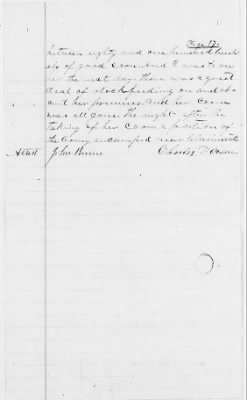 Page 17.
between eighty and one hundred bush-
els of good corn. And I was to see
her the next day there was a great
deal of stock feeding on and abo-
out her premises and her corn
was all gone the night after the
taking of her corn a portion of
the Army encamped near
Attest John Burns Charles